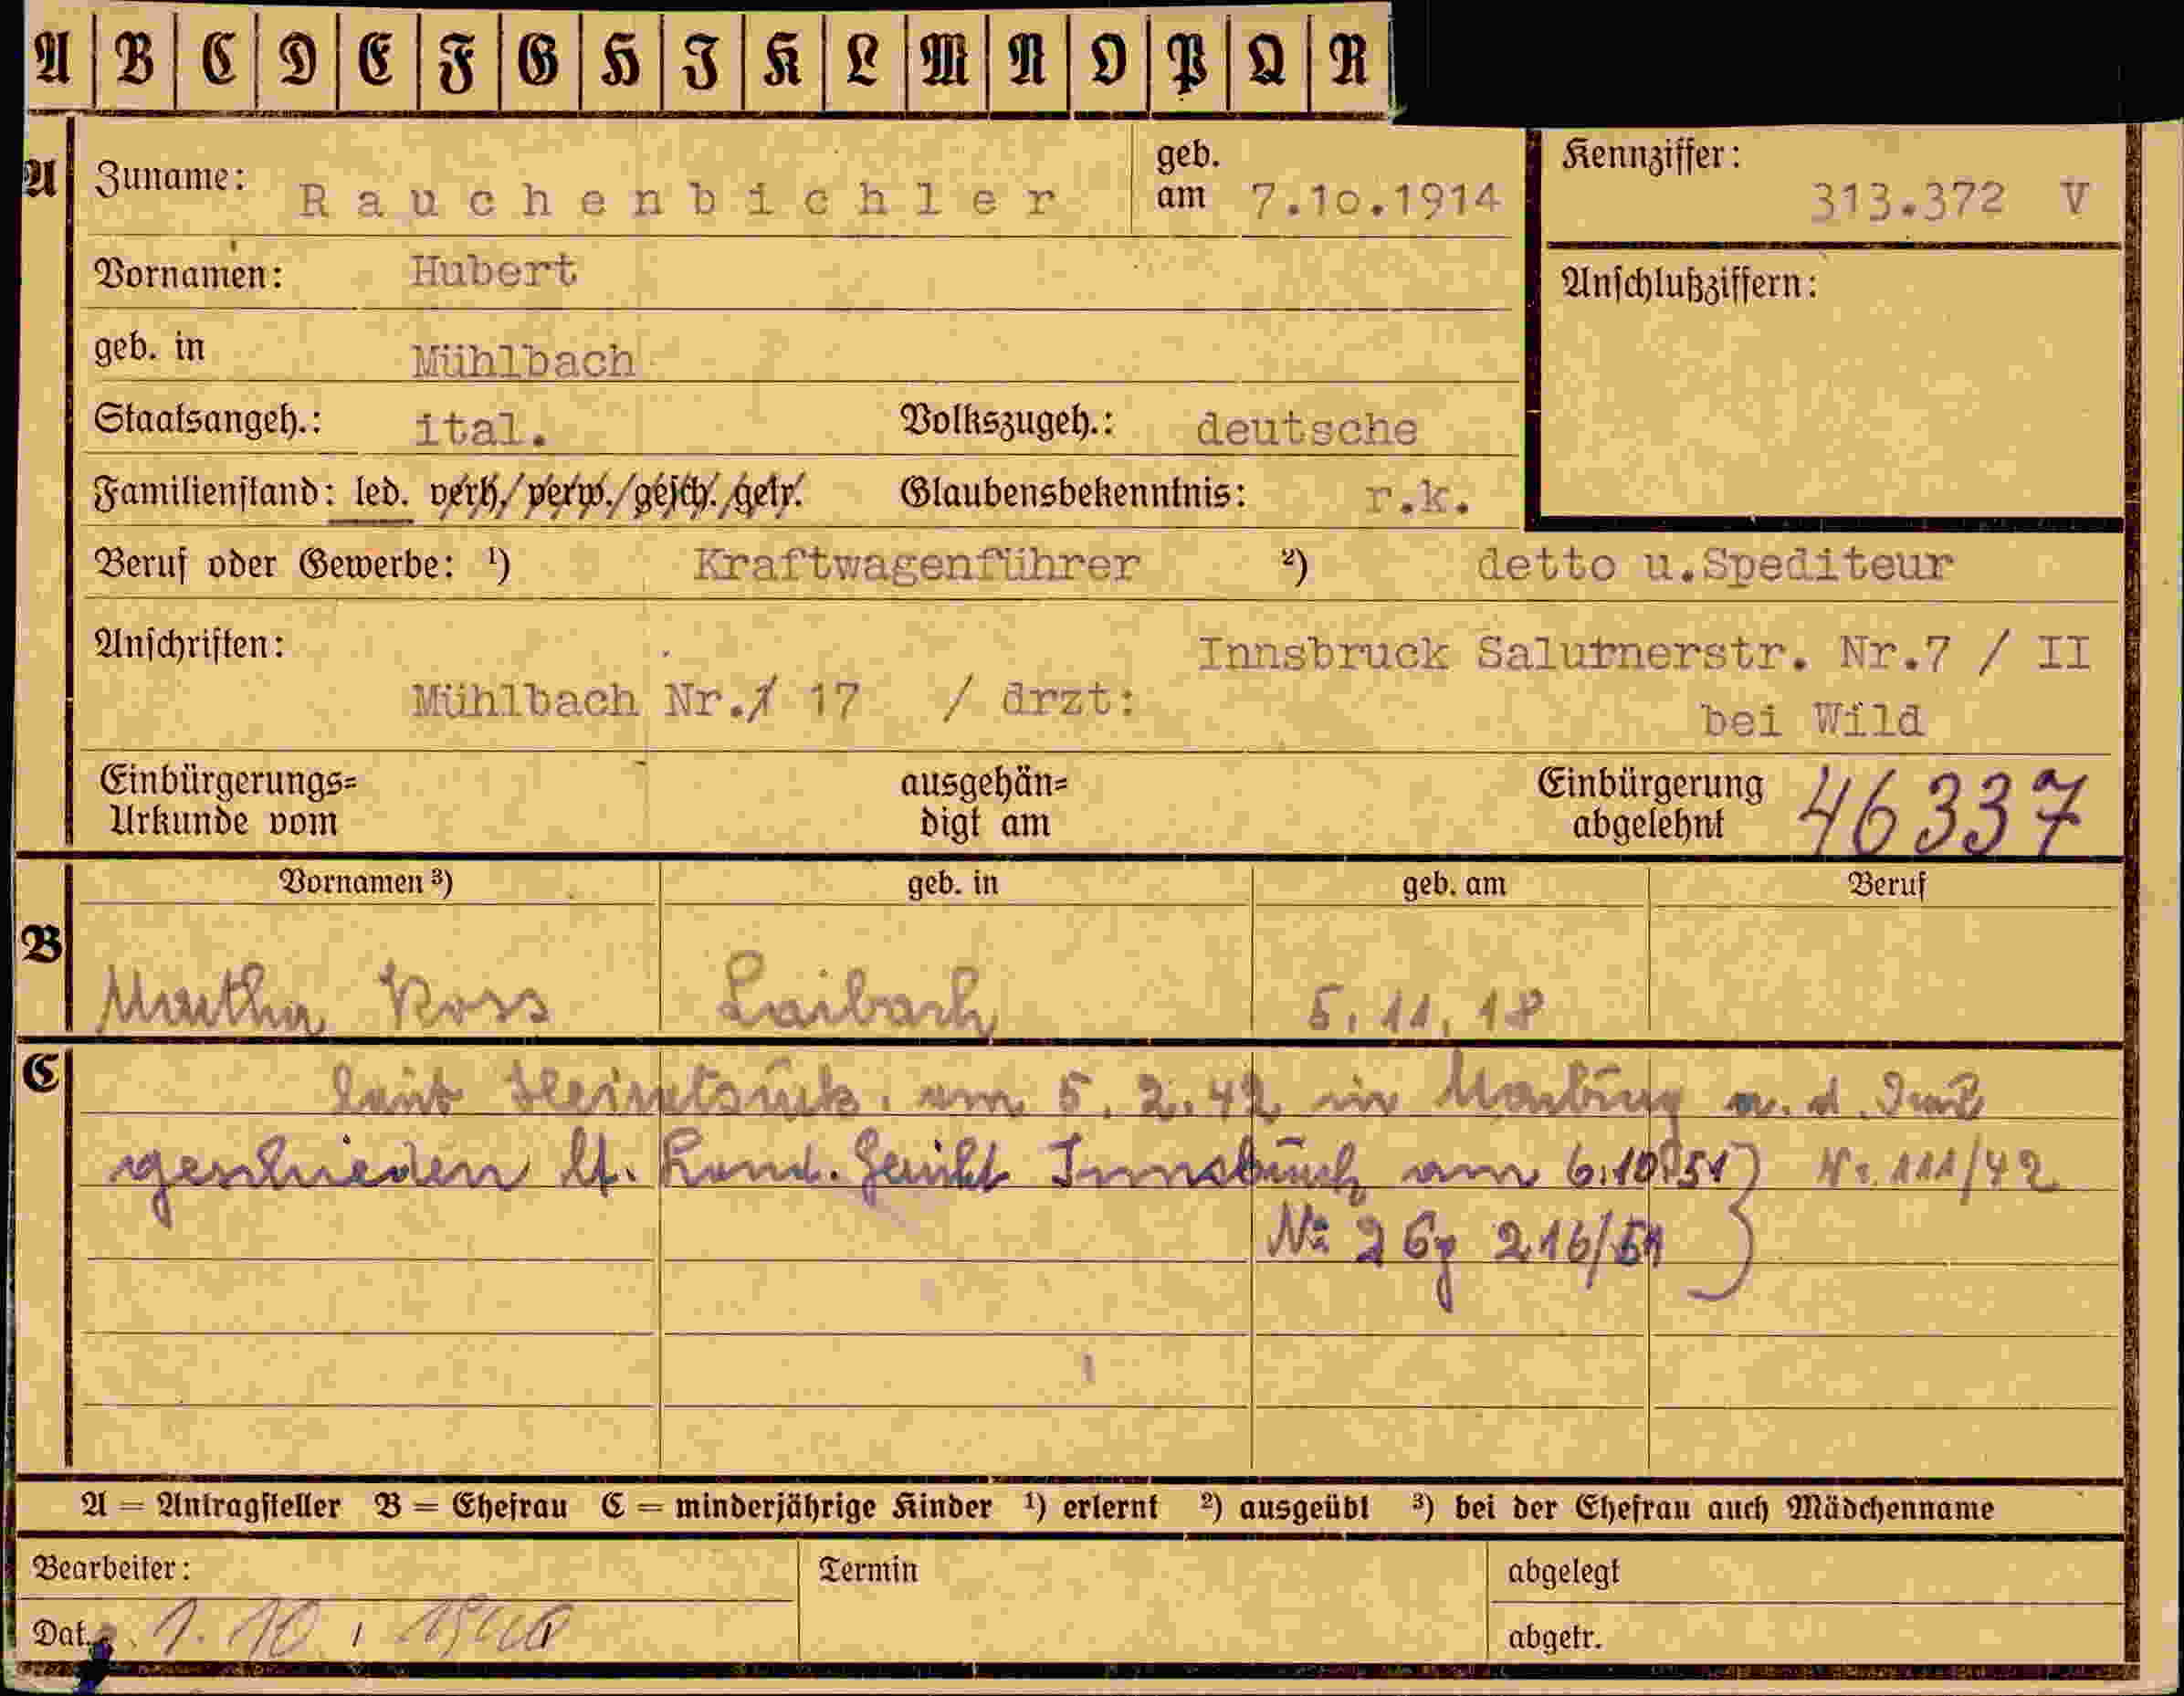 A B C D E F G H J K L M N O P Q R
A Zuname: Rauchenbichler geb. am 7.10.1914 Kennziffer: 313.372 V
Vornamen: Hubert Anschlußziffern:
geb. in Mühlbach
Staatsangeh.: ital. Volkszugeh.: deutsche
Familienstand: led. verh./verw./gesch./getr. Glaubensbekenntnis: r.k.
Beruf oder Gewerbe: ¹) Kraftwagenführer ²) detto u.Spediteur
Anschriften: Innsbruck Salurnerstr. Nr.7 / II
Mühlbach Nr. 17 / drzt:
bei Wild
Einbürgerungs= ausgehän= Einbürgerung 46337
Urkunde vom digt am abgelehnt
Vornamen ³) geb. in geb. am Beruf
B
Martha Ross Laibach 5.11.18
C
laut Heiratsurk. am 5.2.42 in Marburg a. d. Drau
geschieden lt. Land. Gericht Innsbruck am 6.10.51 Nr. 111/42
Nr 2 Cg 216/51
A = Antragsteller B = Ehefrau C = minderjährige Kinder ¹) erlernt ²) ausgeübt ³) bei der Ehefrau auch Mädchenname
Bearbeiter: Termin abgelegt
Dat. 1.10. 1940 abgetr.